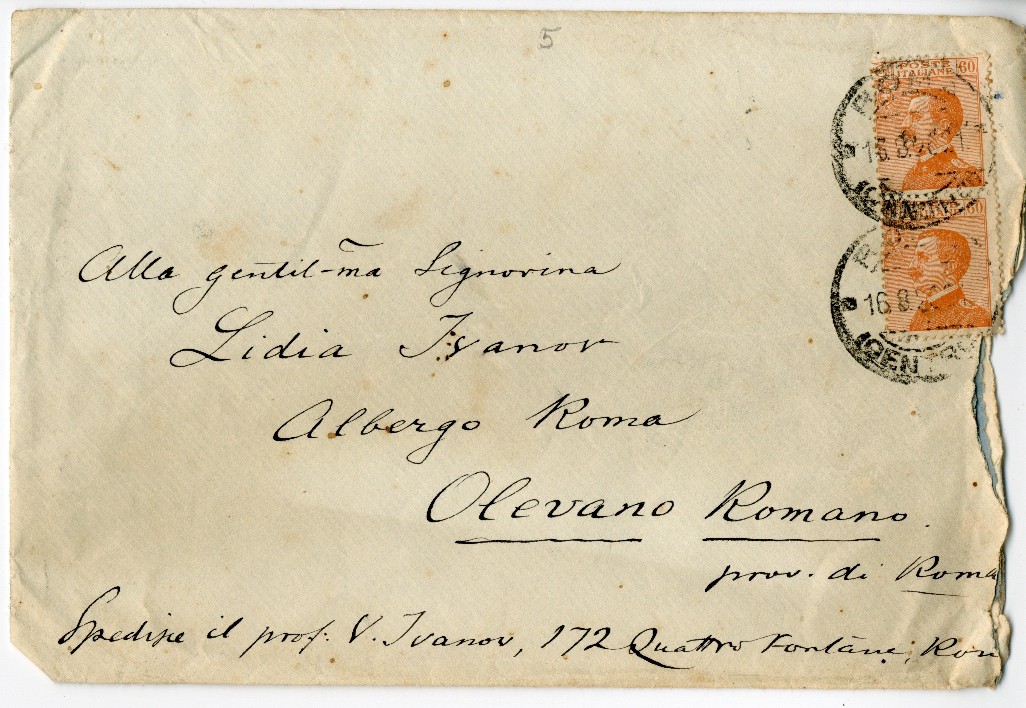 5
POSTE ITALIANE 60
16.8.
60
16.8.
(CENTRO
Alla gentil-m̅a Signorina
Lidia Ivanov
Albergo Roma
Olevano Romano.
prov. di Roma
Spedisce il prof. V. Ivanov, 172 Quattro Fontane,